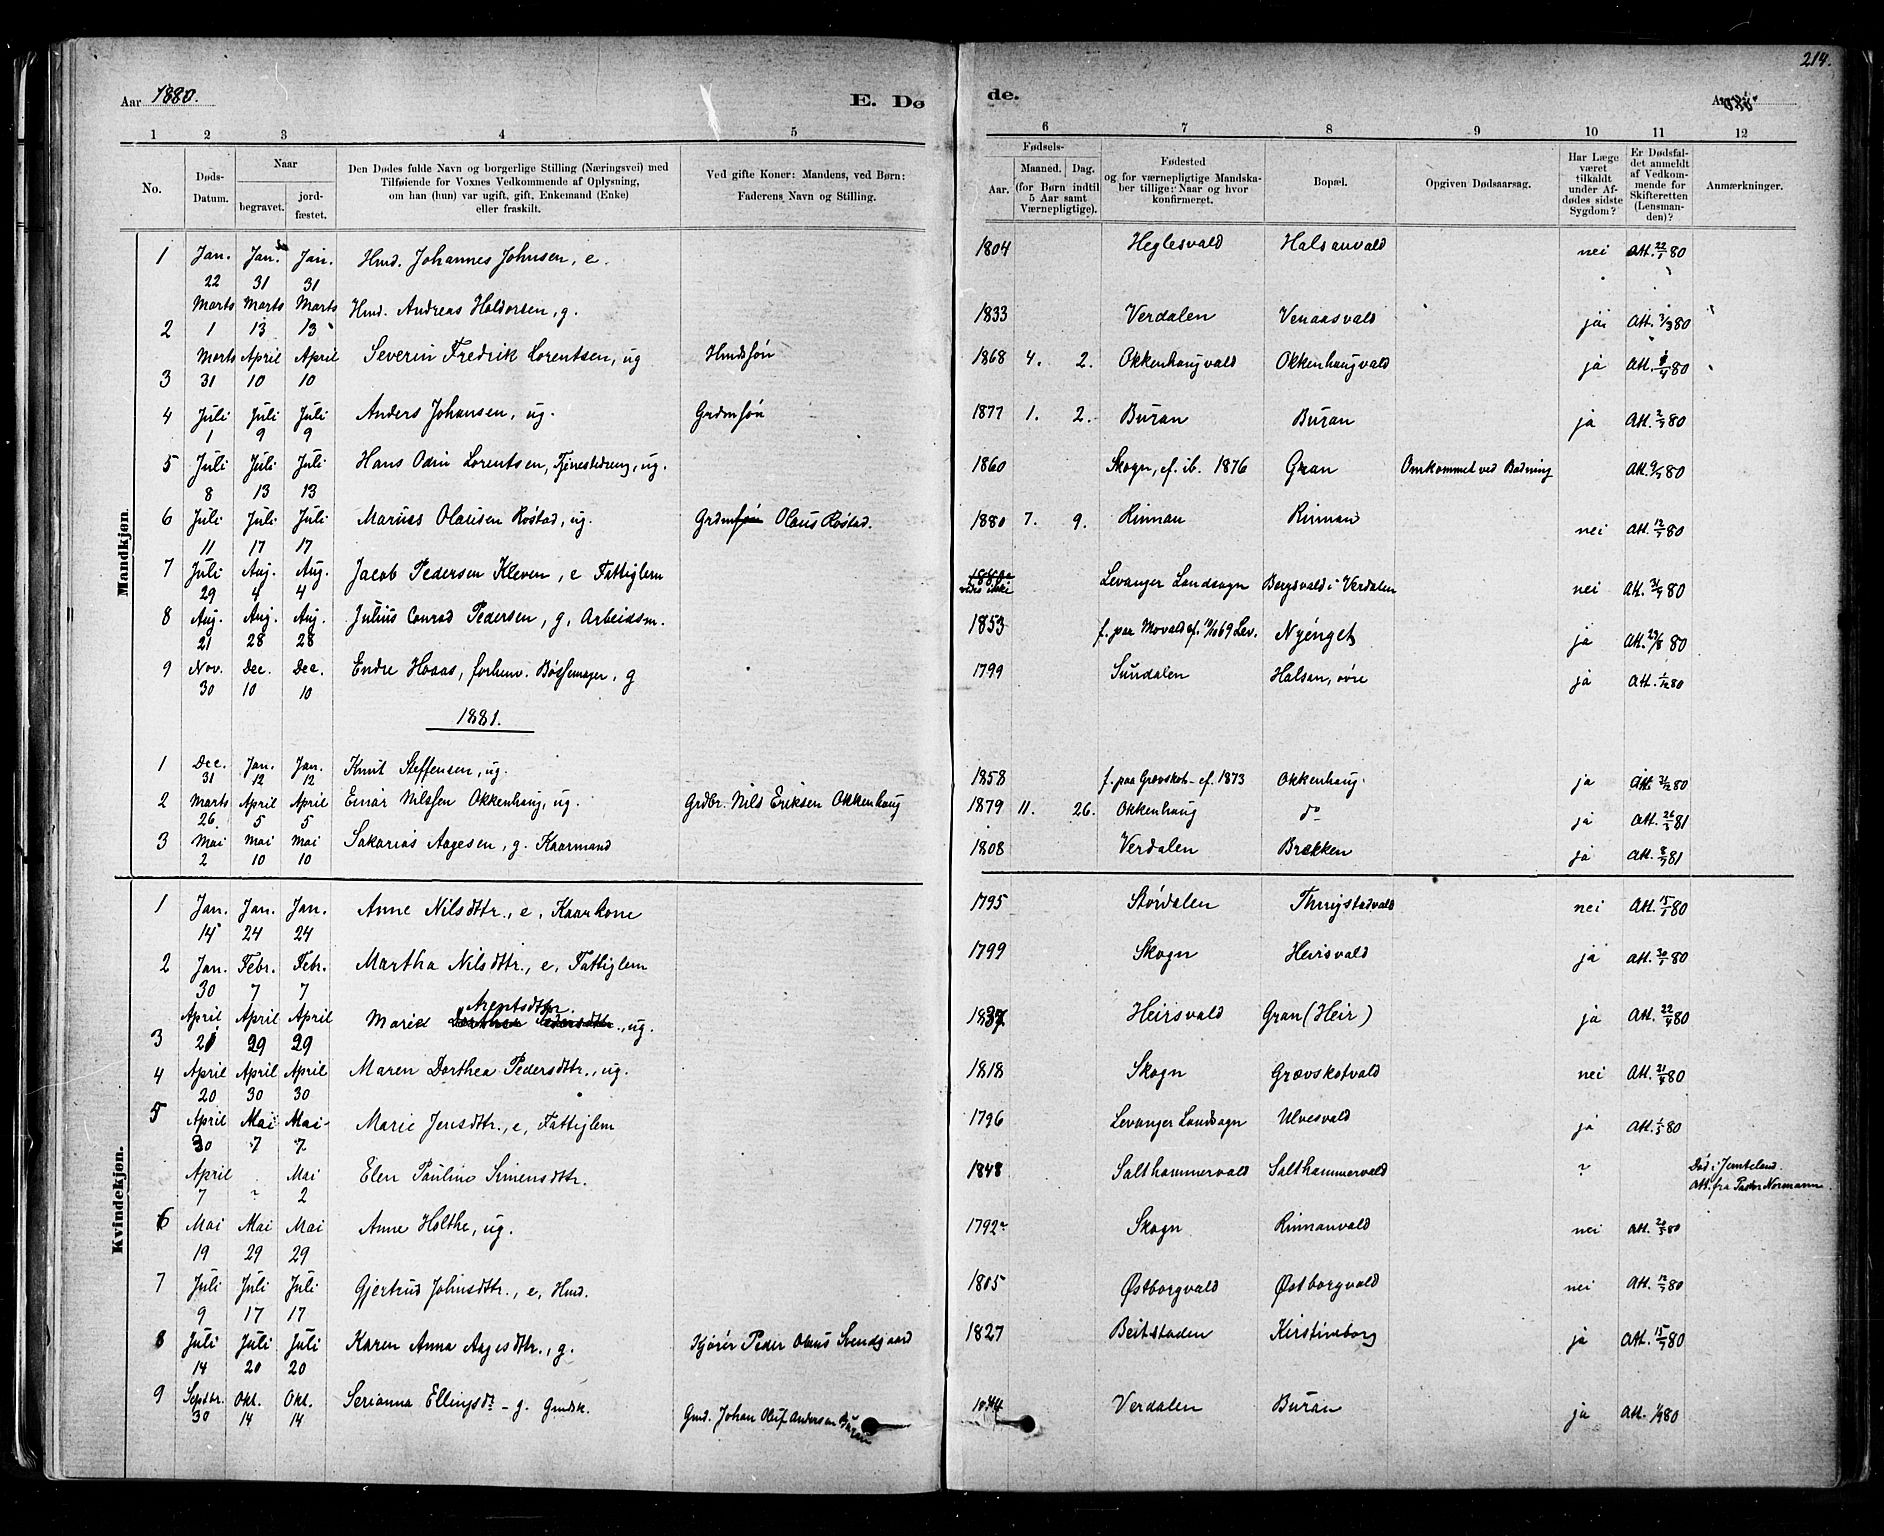 214.
Aar 1880. E. Dø de.
1 2 3 4 5 6 7 8 9 10 11 12
No. Døds-Datum. Naar begravet. jordfæstet. Den Dødes fulde Navn og borgerlige Stilling (Næringsvei) med Tilføiende for Voxnes Vedkommende af Oplysning, om han (hun) var ugift, gift, Enkemand (Enke) eller fraskilt. Ved gifte Koner: Mandens, ved Børn: Faderens Navn og Stilling. Fødsels- Aar. Maaned. Dag. (for Børn indtil 5 Aar samt Værnepligtige). Fødested og for værnepligtige Mandskaber tillige: Naar og hvor konfirmeret. Bopæl. Opgiven Dødsaarsag. Har Læge været tilkaldt under Afdødes sidste Sygdom? Er Dødsfaldet anmeldt af Vedkommende for Skifteretten (Lensmanden)? Anmærkninger.
Mandkjøn.
1 Jan. 22 Jan. 31 Jan. 31 Hmd. Johannes Johnsen, e. 1804 Heglesvald Halsanvald nei Att. 22/1 80
2 Marts 1 Marts 13 Marts 13 Hmd. Andreas Haldorsen, g. 1833 Verdalen Venaasvald ja Att. 2/3 80
3 Marts 31 April 10 April 10 Severin Fredrik Lorentsen, ug Hmdsøn 1868 4. 2. Okkenhaugvald Okkenhaugvald ja Att. /4 80
4 Juli 1 Juli 9 Juli 9 Anders Johansen, ug. Grdmsøn 1877 1. 2. Buran Buran ja Att. 2/7 80
5 Juli 8 Juli 13 Juli 13 Hans Odin Lorentsen, Tjenestedreng, ug. 1860 Skogn, cf. ib. 1876 Gran Omkommet ved Badning Att. 9/7 80
6 Juli 11 Juli 17 Juli 17 Marius Olausen Røstad, ug. Grdmsøn Olaus Røstad. 1880 7. 9. Rinnan Rinnan nei Att. 12/7 80
7 Juli 29 Aug. 4 Aug. 4 Jacob Pedersen Kleven, e Fattiglem vides ikke Levanger Landsogn Bergsvald i Verdalen nei Att. 31/7 80
8 Aug. 21 Aug. 28 Aug. 28 Julius Conrad Pedersen, g. Arbeidsm. 1853 f. paa Movald cf. 17/10 69 Lev. Nyenget ja Att. 23/8 80
9 Nov. 30 Dec. 10 Dec. 10 Endre Hoaas, forhenv. Bøssemager, g 1799 Sundalen Halsan, øvre ja Att. 1/12 80
1881.
1 Dec. 31 Jan. 12 Jan. 12 Knut Steffensen, ug. 1858 f. paa Grevskot - cf. 1873 Okkenhaug ja Att. 31/12 80
2 Marts 26 April 5 April 5 Einar Nilssen Okkenhaug, ug. Grdbr. Nils Eriksen Okkenhaug 1879 11. 26. Okkenhaug do ja Att. 26/3 81
3 Mai 2 Mai 10 Mai 10 Sakarias Aagesen, g. Kaarmand 1808 Verdalen Brekken ja Att. 81
Kvindekjøn.
1 Jan. 14 Jan. 24 Jan. 24 Anne Nilsdttr., e, Kaarkone 1795 Stördalen Thrygstadvald nei Att. 15/1 80
2 Jan. 30 Febr. 7 Febr. 7 Martha Nilsdttr., e, Fattiglem 1799 Skogn Heirsvald ja Att. 30/1 80
3 April 21 April 29 April 29 Marie Arentsdttr., ug. 1837 Heirsvald Gran (Heir) ja Att. 22/4 80
4 April 20 April 30 April 30 Maren Dorthea Pedersdttr., ug. 1818 Skogn Grævskotvald nei Att. 21/4 80
5 April 30 Mai 7 Mai 7 Marie Jensdttr., e, Fattiglem 1796 Levanger Landsogn Ulvesvald ja Att. 1/5 80
April 7 ? Mai 2 Elen Pauline Simensdttr. 1848 Salthammervald Salthammervald ? Död i Jemteland. Att. fra Pastor Normann.
6 Mai 19 Mai 29 Mai 29 Anne Holthe, ug. 1792 Skogn Rinnanvald nei Att. 20/5 80
7 Juli 9 Juli 17 Juli 17 Gjertrud Johnsdttr., e, Hmd. 1805 Østborgvald Østborgvald nei Att. 12/7 80
8 Juli 14 Juli 20 Juli 20 Karen Anna Aagesdttr., g. Kjører Peder Olaus Svendgaard 1827 Beitstaden Kirstineborg ja Att. 15/7 80
9 Septbr. 30 Okt. 14 Okt. 14 Serianna Ellingsdt - g. Gmdsk. Gmd. Johan Oluf Andersen Buran Verdalen Buran ja Att. 80